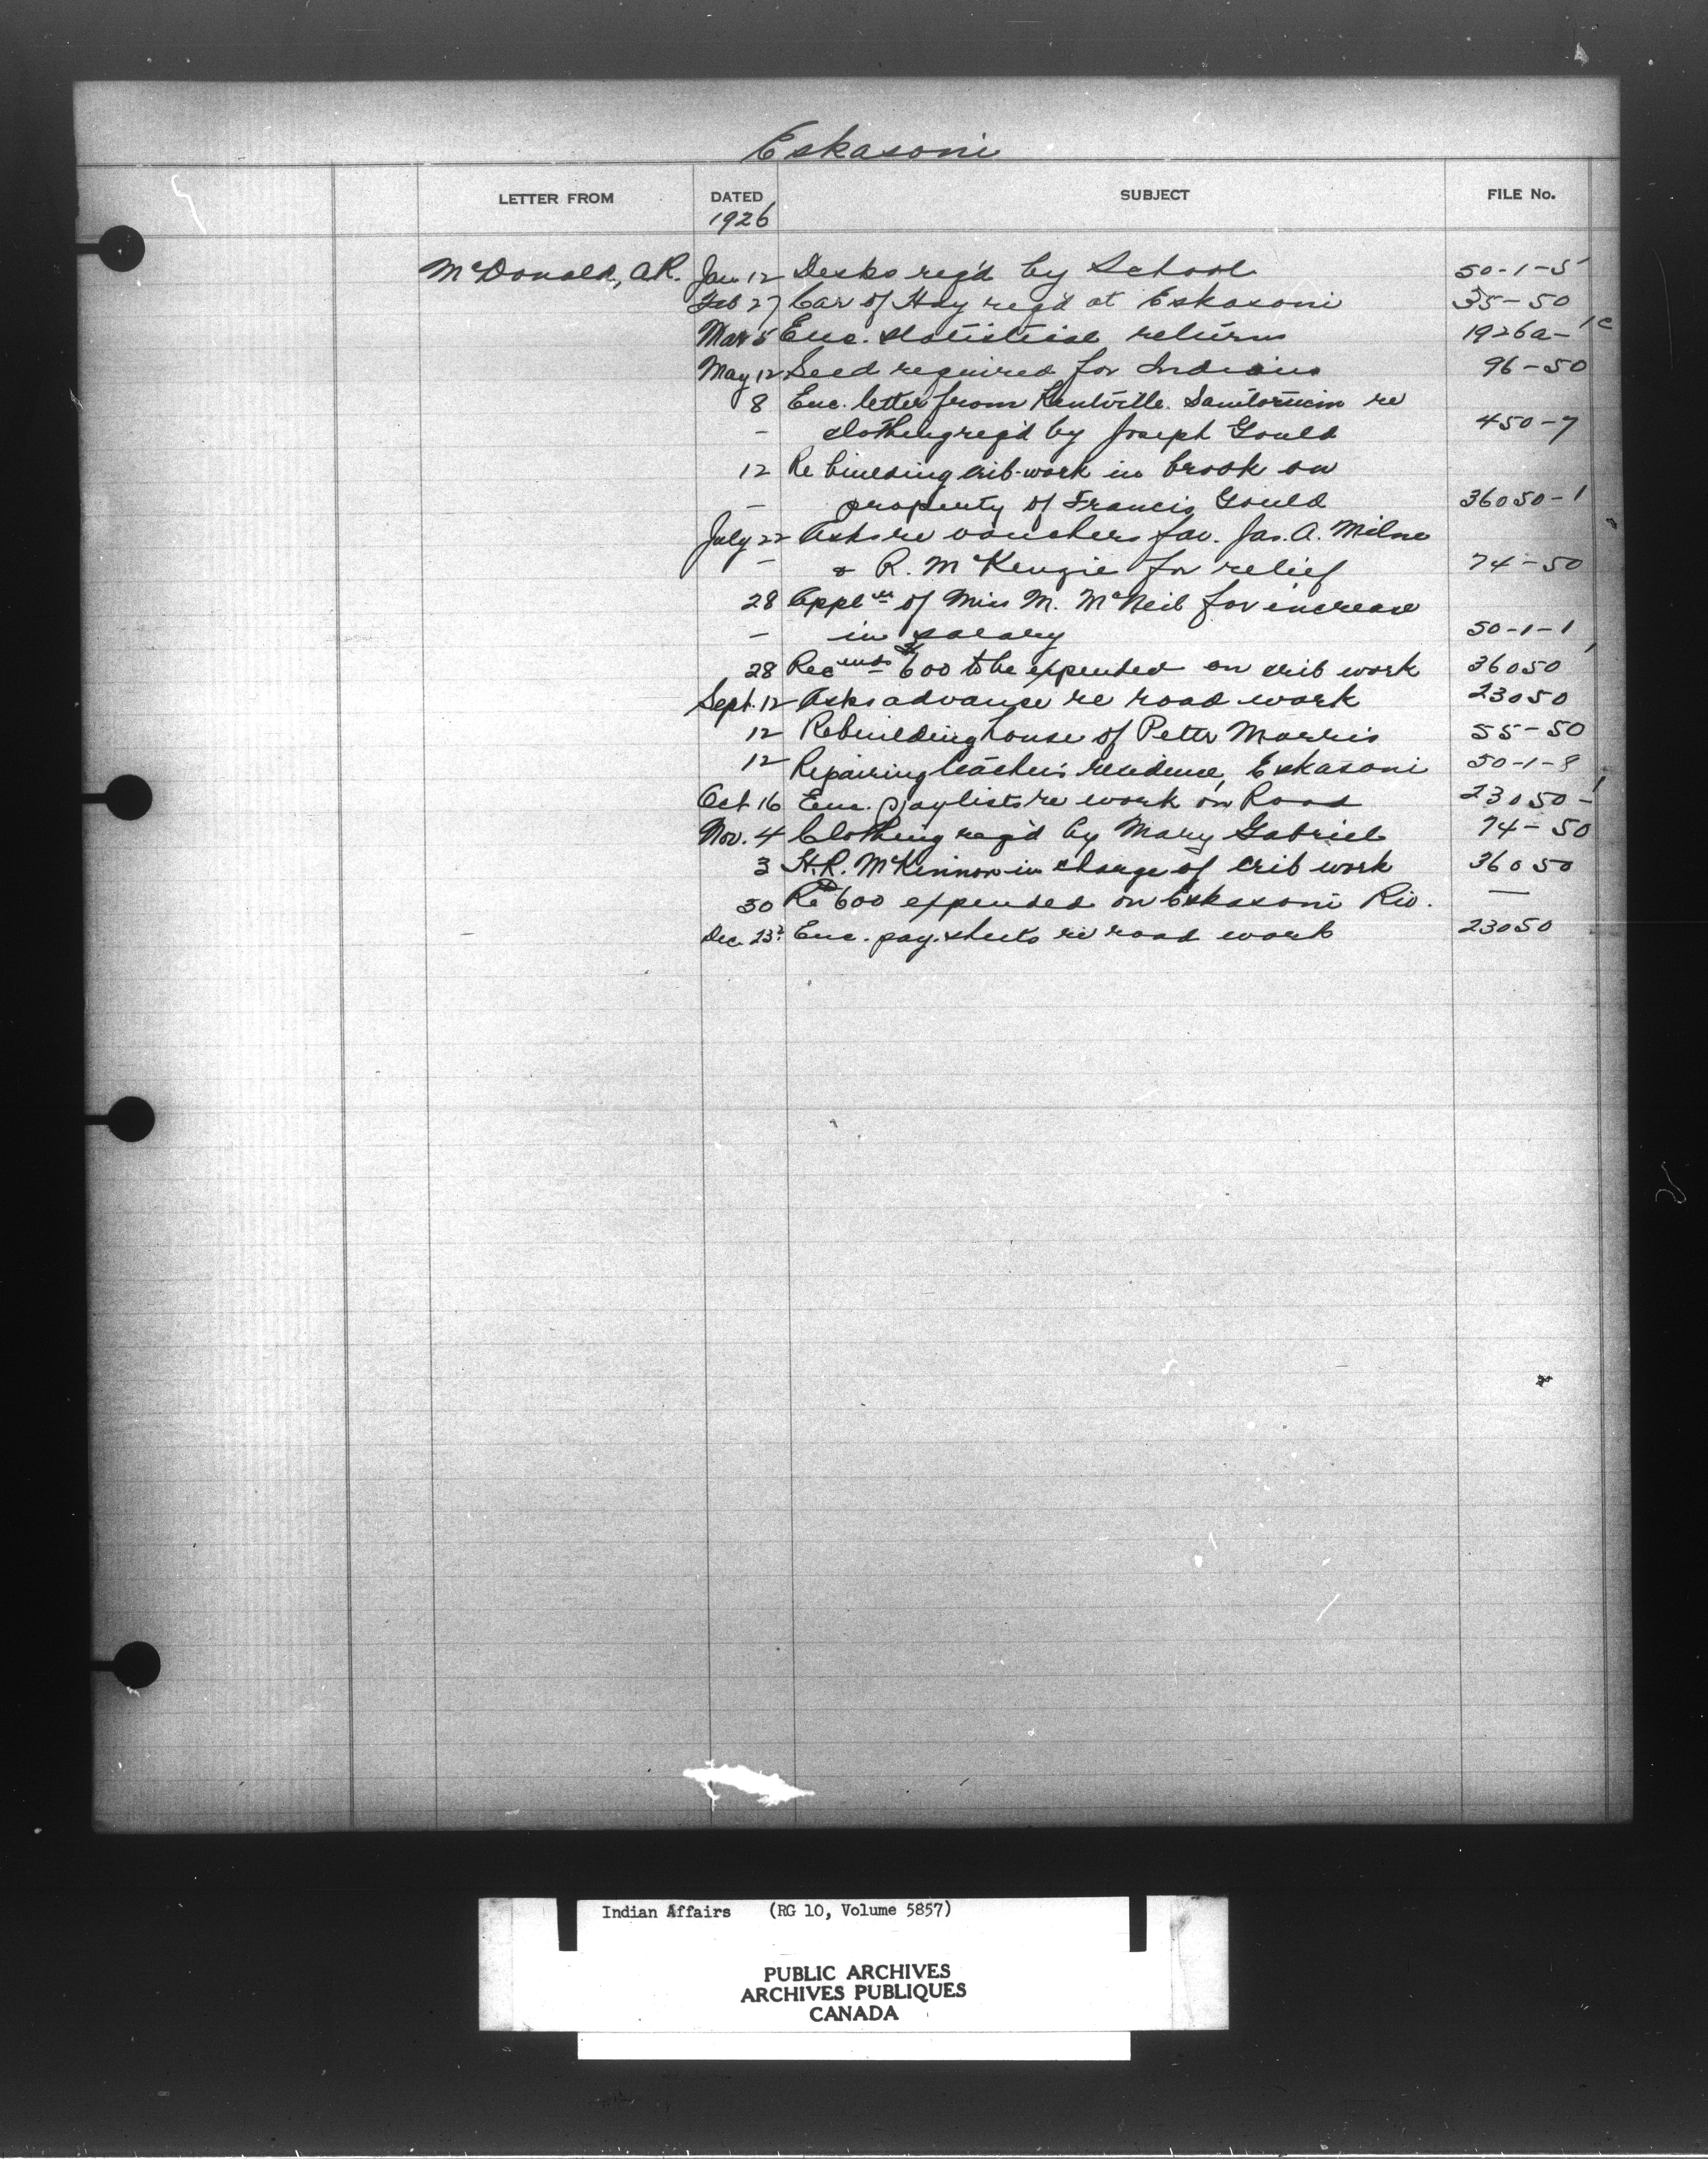 Eskasoni
LETTER FROM DATED SUBJECT FILE No.
1926
McDonald, A.R. Jan. 12 Desks req'd by School 50-1-5
Feb 27 Car of Hay req'd at Eskasoni 35-50
Mar 5 Enc. statistical returns 1926a-1c
May 12 Seed required for Indians 96-50
8 Enc. letter from Kentville Sanitorium re
- clothing req'd by Joseph Gould 450-7
12 Re building crib-work in brook on
- property of Francis Gould 36050-1
July 22 Asks re vouchers fav. Jas. A. Milne
- & R. McKenzie for relief 74-50
28 Appl'n of Miss M. McNeil for increase
- in salary 50-1-1
28 Rec'mds $600 to be expended on crib work 36050
Sept. 12 Asks advance re road work 23050
12 Rebuilding house of Peter Morris 55-50
12 Repairing teacher's residence, Eskasoni 50-1-8
Oct 16 Enc. paylists re work on Road 23050-1
Nov. 4 Clothing req'd by Mary Gabriel 74-50
3 H.R. McKinnon in charge of crib work 36050
30 Re $600 expended on Eskasoni Riv. —
Dec. 23? Enc. pay-sheets re road work 23050
Indian Affairs (RG 10, Volume 5857)
PUBLIC ARCHIVES
ARCHIVES PUBLIQUES
CANADA